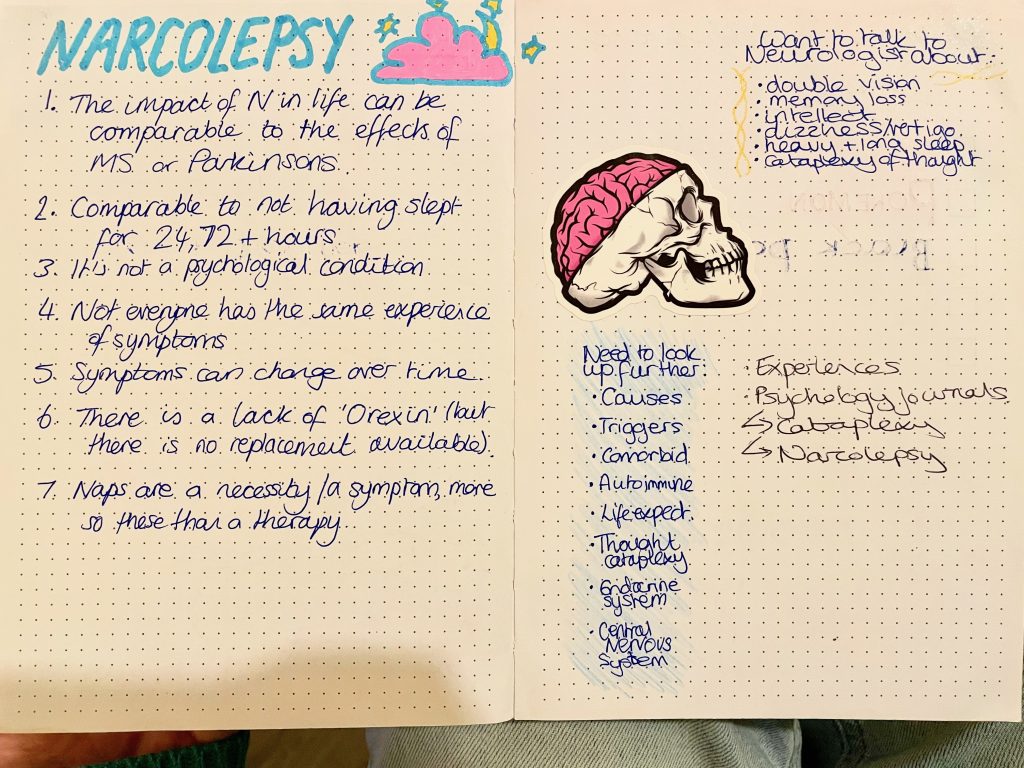 NARCOLEPSY
1. The impact of N in life can be
comparable to the effects of
MS or Parkinsons.
2. Comparable to not having slept
for 24,72 + hours
3. It's not a psychological condition.
4. Not everyone has the same experience
of symptoms
5. Symptoms can change over time.
6. There is a lack of 'Orexin' (but
there is no replacement available).
7. Naps are a necessity/a symptom, more
so these than a therapy
Want to talk to
Neurologist about:
• double vision
• memory loss
• intellect
• dizzness/vertigo
• heavy + long sleep
• cataplexy of thought
Need to look
up further:
• Causes
• Triggers
• Comorbid
• Autoimmine
• Life expect.
• Thought
cataplexy
• Endocrine
system
• Central
Nervous
System
• Experiences
• Psychology journals
↳ Cataplexy
↳ Narcolepsy